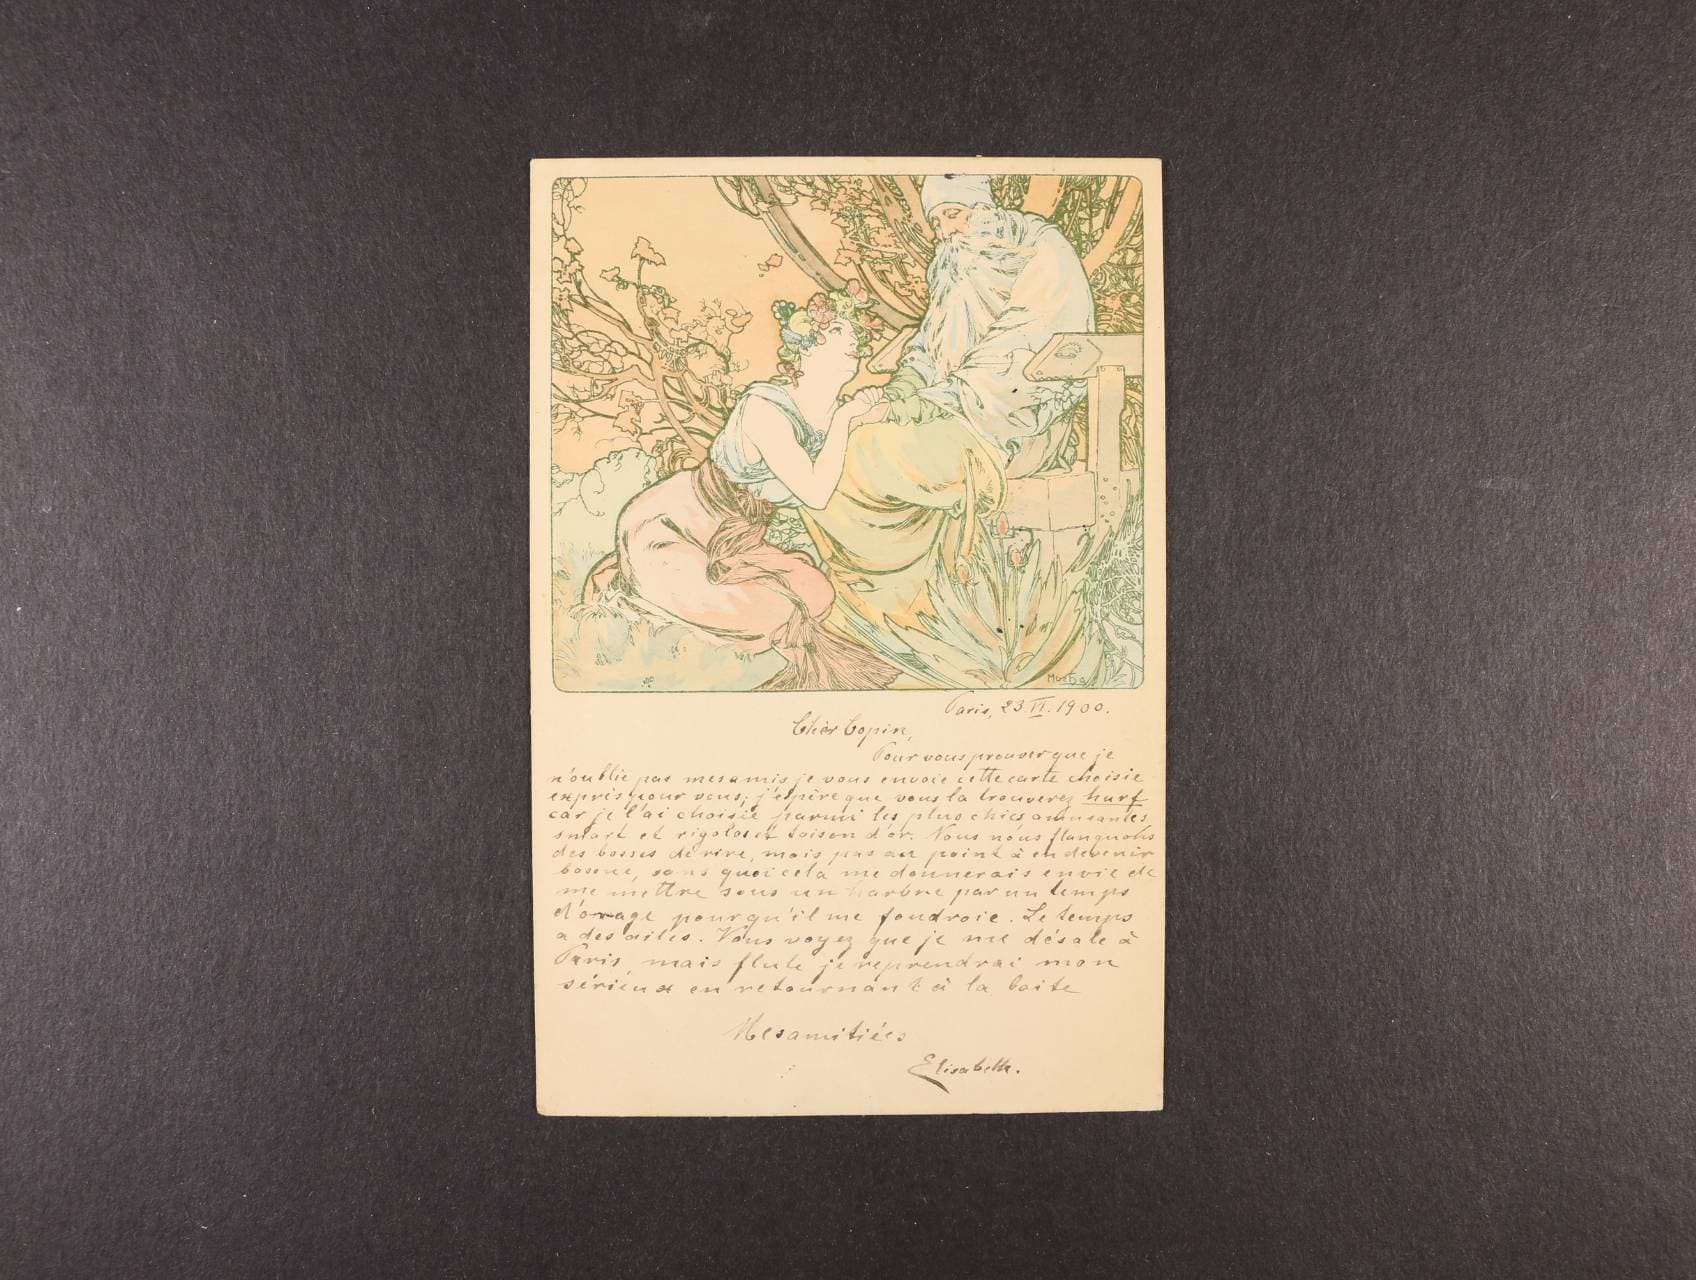 Mucha
Paris, 23.VI.1900.
Cher Copin,
Pour vous prouver que je
n'oublie pas mes amis je vous envoie cette carte choisie
exprès pour vous; j'espère que vous la trouverez hurf
car je l'ai choisie parmi les plus chics amusantes
smart et rigolos et toison d'or. Nous nous flanquons
des bosses de rire, mais pas au point à en devenir
bossue, sans quoi cela me donnerais envie de
me mettre sous un harbre par un temps
d'orage pourqu'il me foudroie. Le temps
a des ailes. Vous voyez que je me désale à
Paris mais flute je reprendrai mon
sérieux en retournant à la boite
Mes amitiées
Elisabeth.